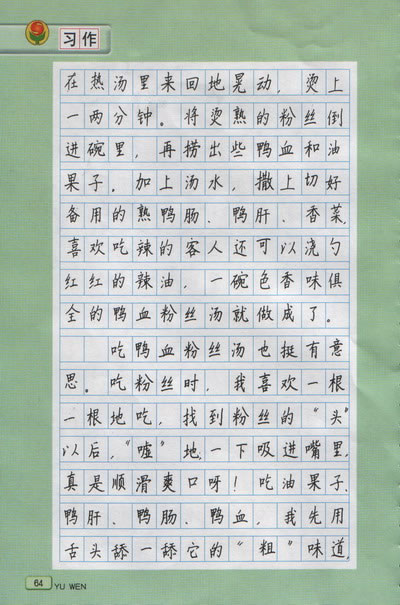 习作
在热汤里来回地晃动，烫上
一两分钟。将烫熟的粉丝倒
进碗里，再捞出些鸭血和油
果子，加上汤水，撒上切好
备用的熟鸭肠、鸭肝、香菜，
喜欢吃辣的客人还可以浇勺
红红的辣油，一碗色香味俱
全的鸭血粉丝汤就做成了。
吃鸭血粉丝汤也挺有意
思。吃粉丝时，我喜欢一根
一根地吃，找到粉丝的“头”
以后，“嘘”地一下吸进嘴里，
真是顺滑爽口呀！吃油果子、
鸭肝、鸭肠、鸭血，我先用
舌头舔一舔它的“粗”味道，
64 YU WEN